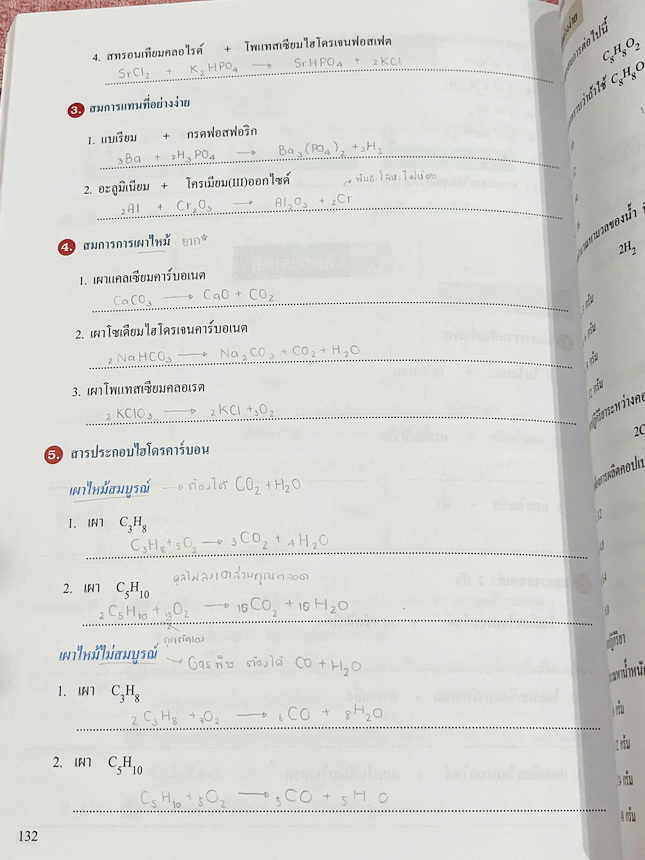 4. สทรอนเทียมคลอไรด์ + โพแทสเซียมไฮโดรเจนฟอสเฟต
SrCl₂ + K₂HPO₄ → SrHPO₄ + 2KCl
3. สมการแทนที่อย่างง่าย
1. แบเรียม + กรดฟอสฟอริก
3Ba + 2H₃PO₄ → Ba₃(PO₄)₂ + 3H₂
2. อะลูมิเนียม + โครเมียม(III)ออกไซด์
2Al + Cr₂O₃ → Al₂O₃ + 2Cr
4. สมการการเผาไหม้ ยาก*
1. เผาแคลเซียมคาร์บอเนต
CaCO₃ → CaO + CO₂
2. เผาโซเดียมไฮโดรเจนคาร์บอเนต
2NaHCO₃ → Na₂CO₃ + CO₂ + H₂O
3. เผาโพแทสเซียมคลอเรต
2KClO₃ → 2KCl + 3O₂
5. สารประกอบไฮโดรคาร์บอน
เผาไหม้สมบูรณ์ → ต้องได้ CO₂ + H₂O
1. เผา C₃H₈
C₃H₈ + 5O₂ → 3CO₂ + 4H₂O
2. เผา C₅H₁₀
2C₅H₁₀ + O₂ → 10CO₂ + 10H₂O
เผาไหม้ไม่สมบูรณ์ → Gas พิษ ต้องได้ CO + H₂O
1. เผา C₃H₈
2C₃H₈ + 7O₂ → 6CO + 8H₂O
2. เผา C₅H₁₀
C₅H₁₀ + 5O₂ → 5CO + 5H₂O
132
C₈H₈O₂
2H₂